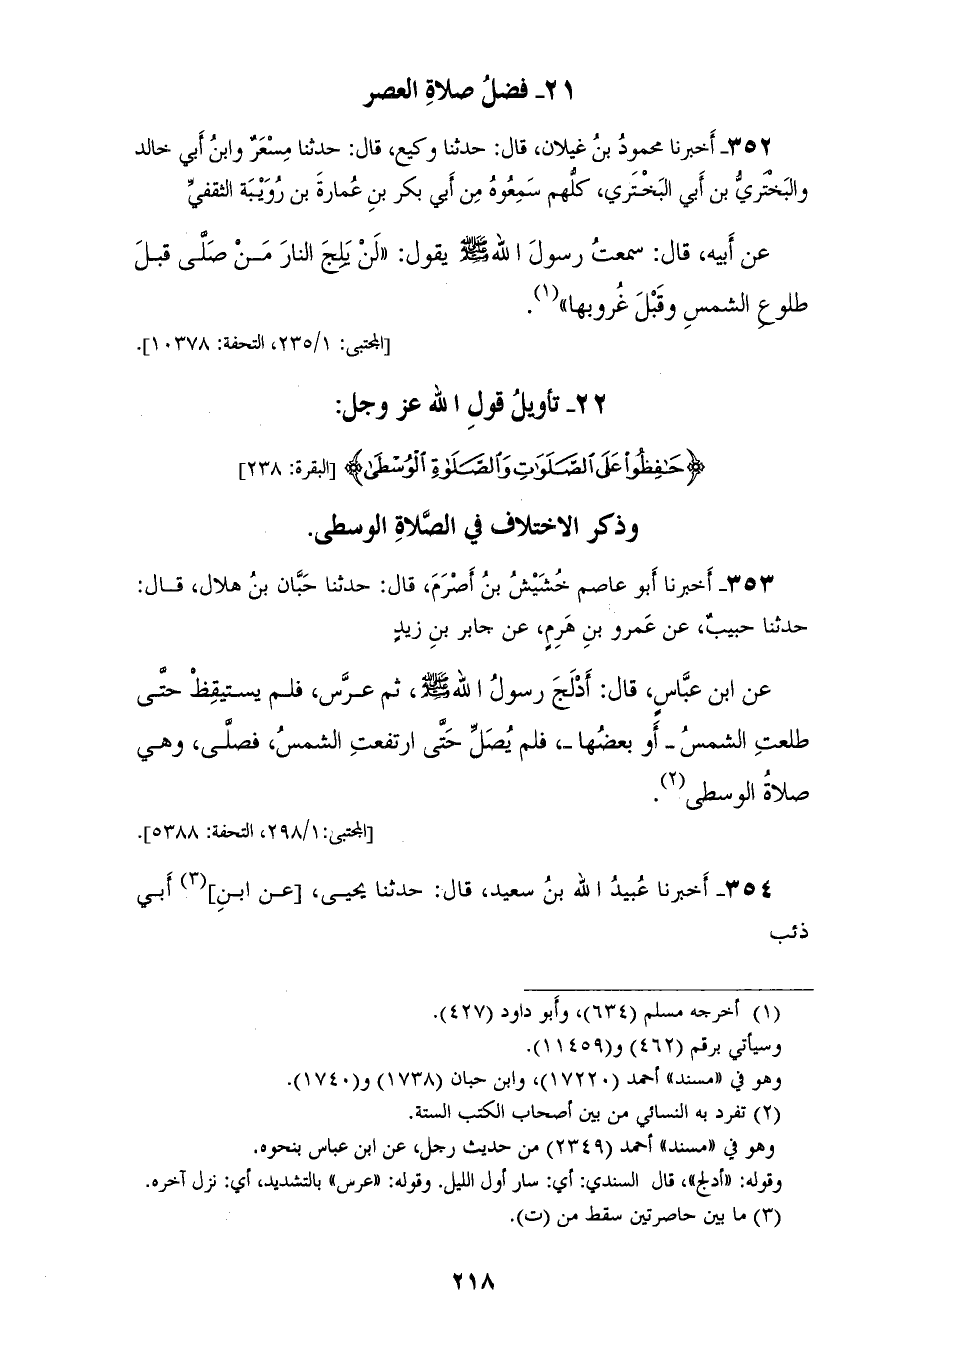 ٢١ـ فضلُ صلاةِ العصر
٣٥٢ـ أَخبرنا محمودُ بنُ غيلان، قال: حدثنا وكيع، قال: حدثنا مِسْعَرٌ وابنُ أَبي خالد
والبَخْتَريُّ بن أَبي البَخْتَري، كلُّهم سَمِعُوهُ مِن أَبي بكر بنِ عُمارةَ بن رُوَيْبَة الثقفيِّ
عن أَبيه، قال: سمعتُ رسولَ اللهﷺ يقول: «لَنْ يَلِجَ النارَ مَـنْ صَلَّى قبلَ
طلوعِ الشمسِ وقَبْلَ غُروبها»(١).
[المجتبى: ٢٣٥/١، التحفة: ١٠٣٧٨].
٢٢ـ تأويلُ قولِ الله عز وجل:
﴿حَـٰفِظُوا۟ عَلَى ٱلصَّلَوَٰتِ وَٱلصَّلَوٰةِ ٱلْوُسْطَىٰ﴾ [البقرة: ٢٣٨]
وذكر الاختلاف في الصَّلاةِ الوسطى.
٣٥٣ـ أَخبرنا أَبو عاصم خُشَيْشُ بنُ أَصْرَمَ، قال: حدثنا حَبَّان بنُ هلال، قـال:
حدثنا حبيبٌ، عن عَمرو بنِ هَرِمٍ، عن جابر بنِ زيدٍ
عن ابن عبَّاسٍ، قال: أَدْلَجَ رسولُ اللهﷺ، ثم عـرَّس، فلـم يسـتيقِظْ حتَّـى
طلعتِ الشمسُ ـ أَو بعضُها ـ، فلم يُصَلِّ حتَّى ارتفعتِ الشمسُ، فصلَّـى، وهـي
صلاةُ الوسطى(٢).
[المجتبى: ٢٩٨/١، التحفة: ٥٣٨٨].
٣٥٤ـ أَخبرنا عُبيدُ الله بنُ سعيد، قال: حدثنا يحيـى، [عـن ابـنِ](٣) أَبـي
ذئب
(١) أخرجه مسلم (٦٣٤)، وأبو داود (٤٢٧).
وسيأتي برقم (٤٦٢) و(١١٤٥٩).
وهو في «مسند» أحمد (١٧٢٢٠)، وابن حبان (١٧٣٨) و(١٧٤٠).
(٢) تفرد به النسائي من بين أصحاب الكتب الستة.
وهو في «مسند» أحمد (٢٣٤٩) من حديث رجل، عن ابن عباس بنحوه.
وقوله: «أدلج»، قال السندي: أي: سار أول الليل. وقوله: «عرس» بالتشديد، أي: نزل آخره.
(٣) ما بين حاصرتين سقط من (ت).
٢١٨